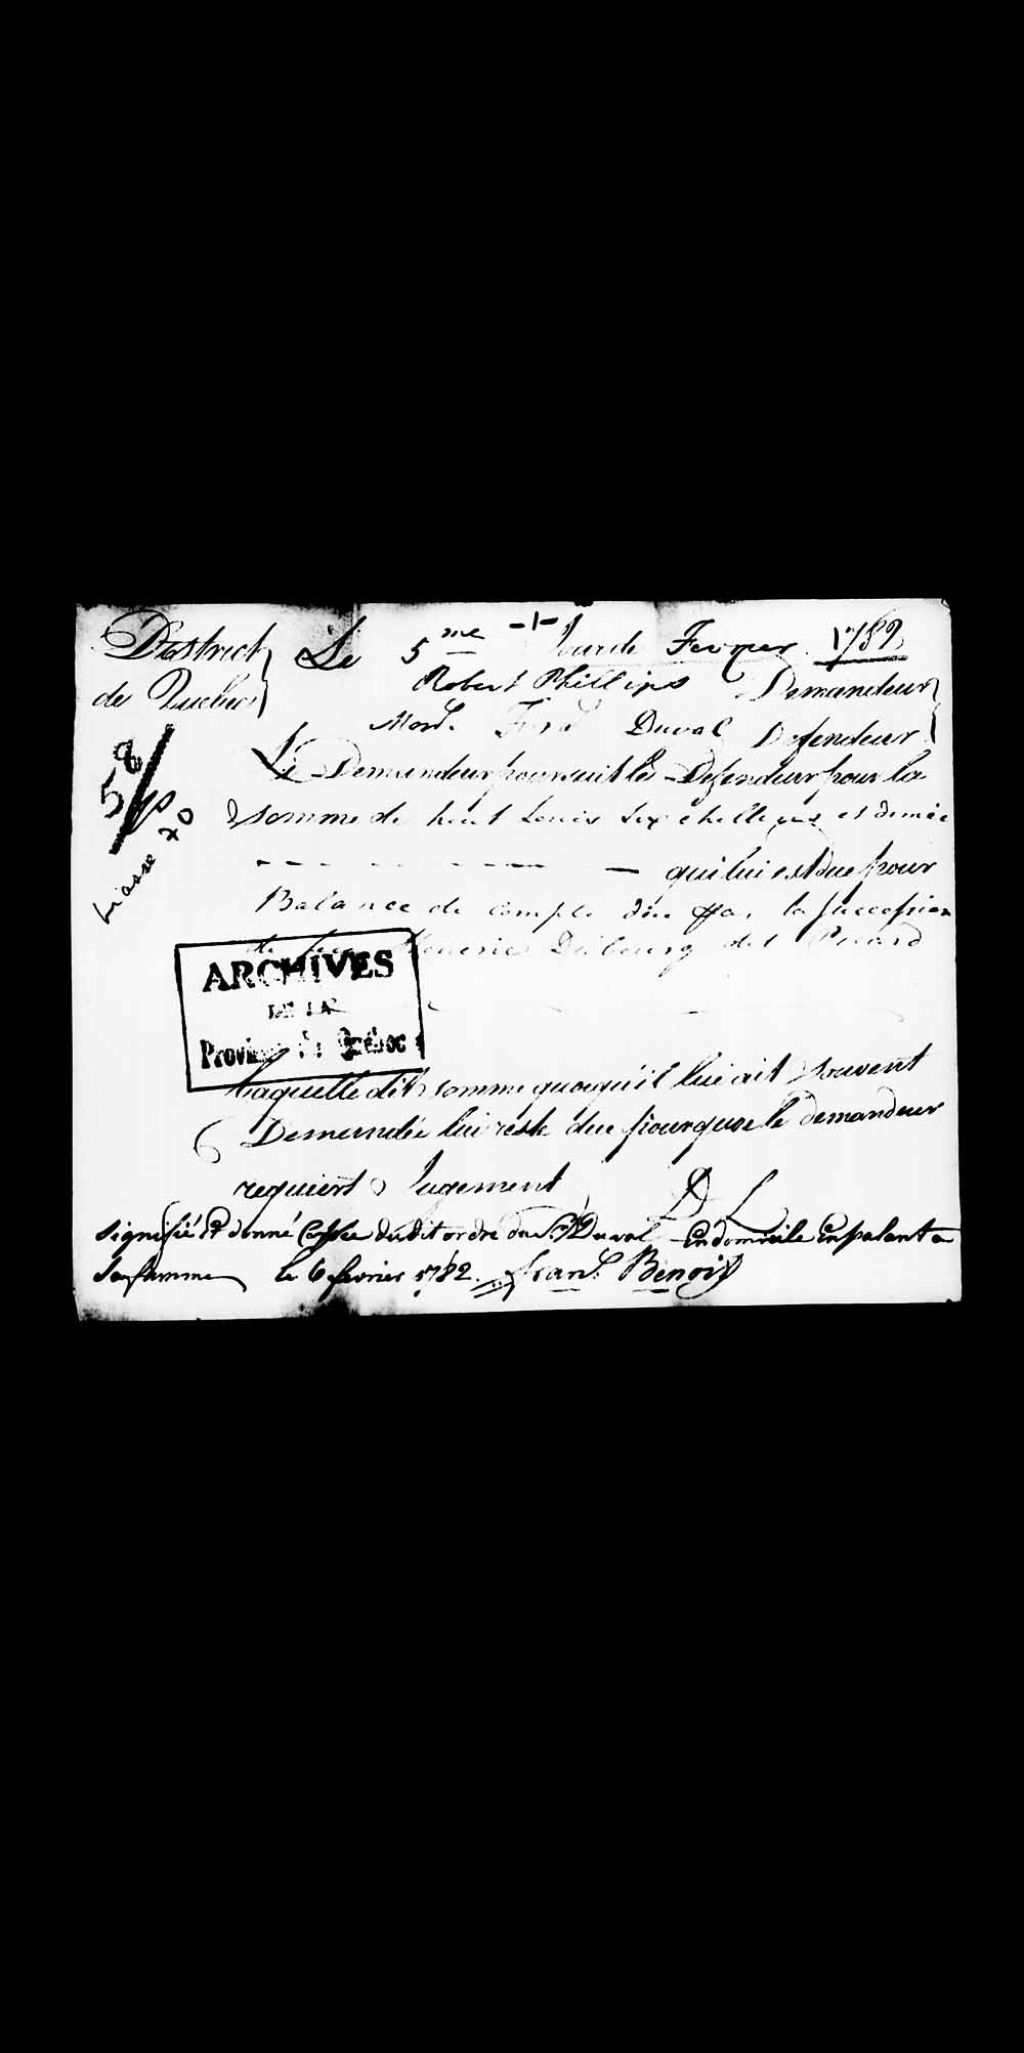 -1-
District Le 5me Jour de Fevrier 1782
de Quebec Robert Phillips Demandeur
Duval Defendeur
Le Demandeur poursuit le Defendeur pour la
somme de huit Louis six chellins et demie
qui lui est due pour
Balance de compte düe par la Succession
de feu Dubourg dit Picard
58
Liasse 20
ARCHIVES
DE LA
Province de Québec
Laquelle dite somme quoiqu'il lui ait souvent
Demandée lui reste due pourquoi le demandeur
requiert Jugement
D L
signifié et donné Copie dudit ordre au Sr Duval En domicile En palant a
Sa famme le 6 fevrier 1782. Fran. Benoit